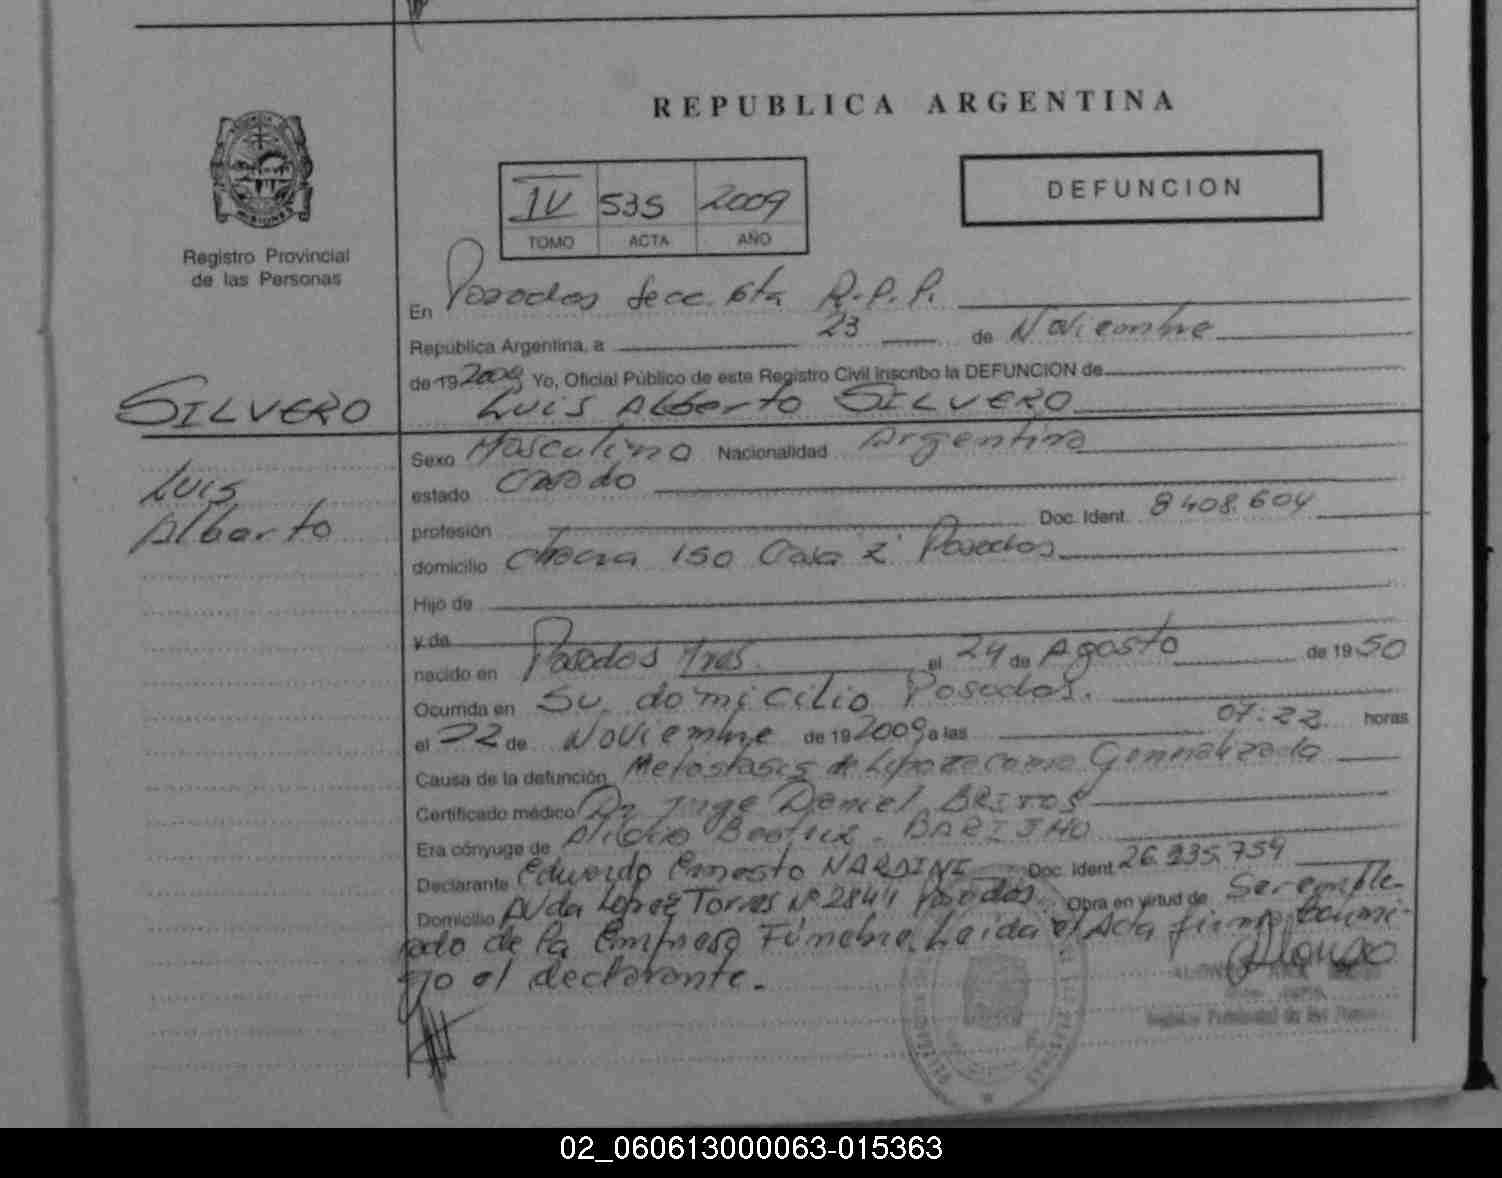 REPUBLICA ARGENTINA
DEFUNCION
IV 535 2009
TOMO ACTA AÑO
Registro Provincial
de las Personas
En Posadas Secc. 6ta R.P.P.
República Argentina, a 23 de Noviembre
de 19 2009 Yo, Oficial Público de este Registro Civil inscribo la DEFUNCION de
SILVERO
Luis Alberto SILVERO
Luis
Alberto
Sexo Masculino Nacionalidad Argentina
estado Casado
profesión Doc. Ident. 8408.604
domicilio Chacra 150 Casa 2 Posadas
Hijo de
y de
nacido en Posadas Mnes. el 24 de Agosto de 1950
Ocurrida en Su domicilio Posadas.
el 22 de Noviembre de 19 2009 a las 07:22 horas
Causa de la defunción Metastasis de Generalizada
Certificado médico Dr Jorge Daniel BRITOS
Era cónyuge de Beatriz
Declarante Eduardo Ernesto NARDINI Doc. Ident 26.235.759
Domicilio Avda Lopez Torres Nº 2844 Posadas. Obra en virtud de Ser emple-
ado de la Empresa Fúnebre. Leida el Acta firma conmi-
go el declarante.-
Alonso
02_060613000063-015363